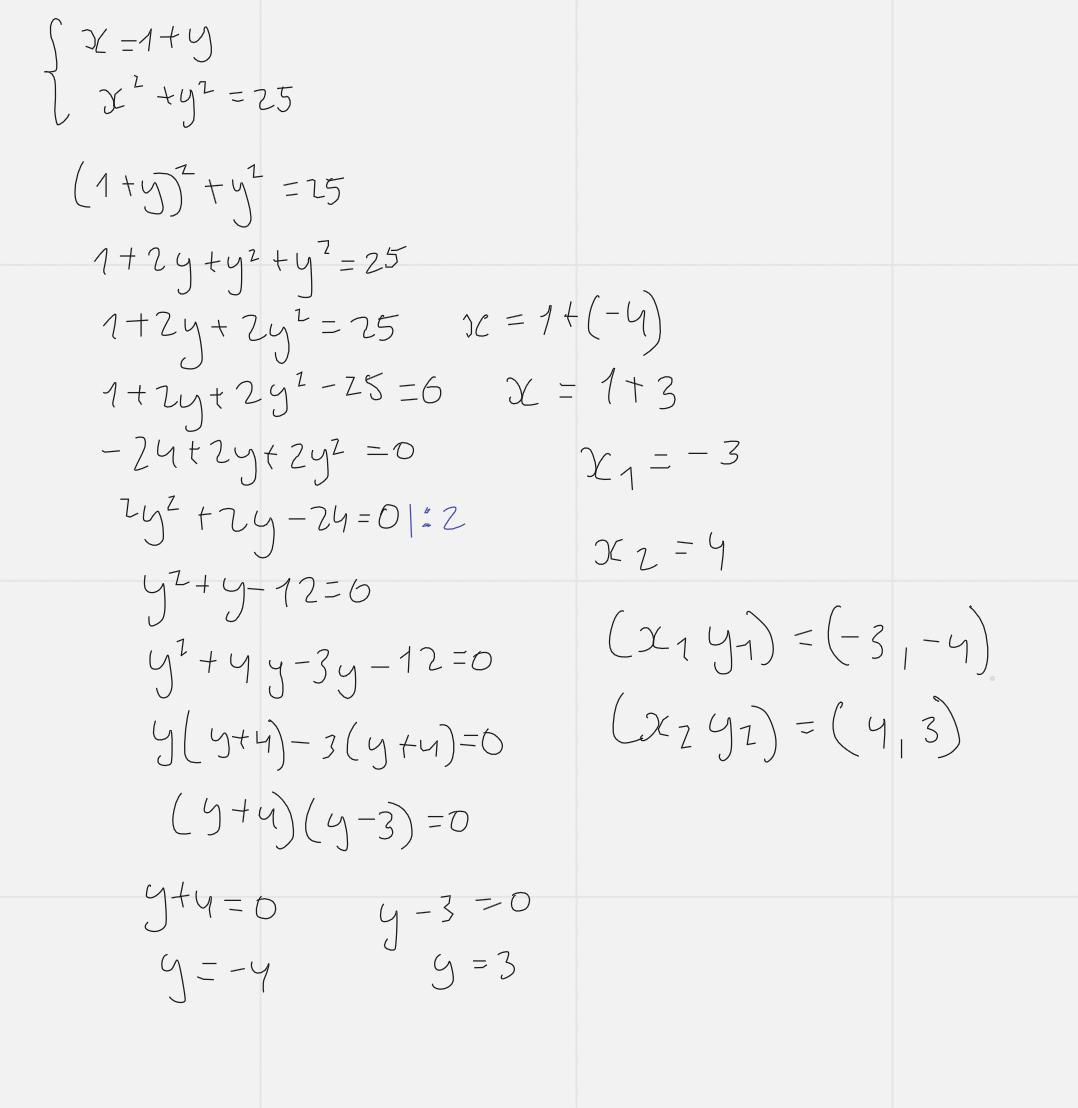 { x=1+y
x² +y² =25
(1+y)² +y² =25
1+2y+y² +y² =25
1+2y+2y² =25
1+2y+2y² -25=0
-24+2y+2y² =0
2y² +2y-24=0 |:2
y² +y-12=0
y² +4y-3y-12=0
y(y+4)-3(y+4)=0
(y+4)(y-3)=0
y+4=0 y-3=0
y=-4 y=3
x=1+(-4)
x=1+3
x₁=-3
x₂=4
(x₁ y₁)=(-3,-4)
(x₂ y₂)=(4,3)